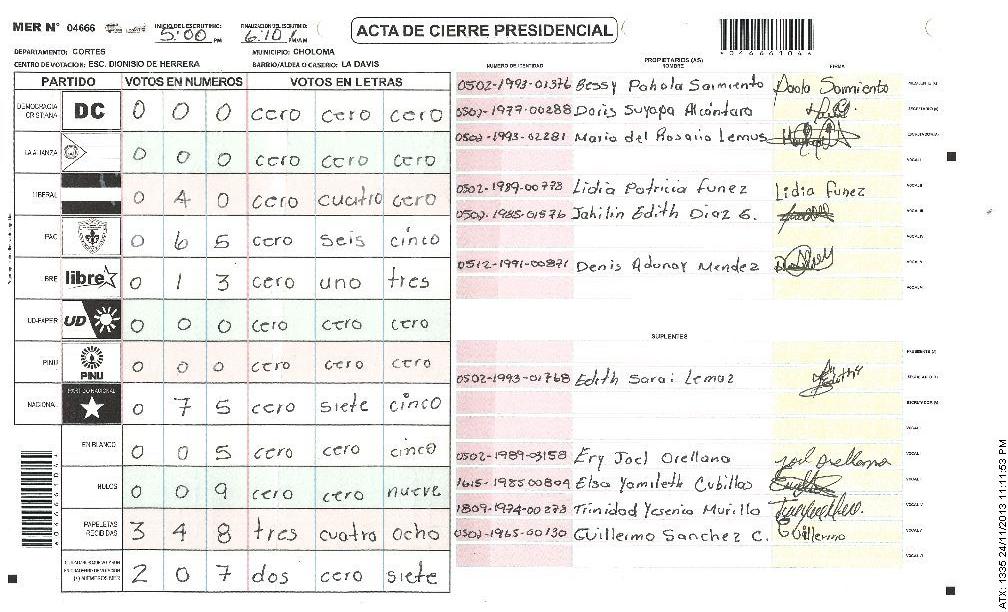 MER Nº 04666 INICIO DEL ESCRUTINIO: 5:00 PM FINALIZACION DEL ESCRUTINIO: 6:10 PM/AM
ACTA DE CIERRE PRESIDENCIAL
DEPARTAMENTO: CORTES MUNICIPIO: CHOLOMA
CENTRO DE VOTACION: ESC. DIONISIO DE HERRERA BARRIO/ALDEA O CASERIO: LA DAVIS
PARTIDO VOTOS EN NUMEROS VOTOS EN LETRAS
DEMOCRACIA CRISTIANA DC 0 0 0 cero cero cero
LA ALIANZA 0 0 0 cero cero cero
LIBERAL 0 4 0 cero cuatro cero
PAC 0 6 5 cero seis cinco
libre 0 1 3 cero uno tres
UD-FAPER UD 0 0 0 cero cero cero
PINU PINU 0 0 0 cero cero cero
NACIONAL PARTIDO NACIONAL 0 7 5 cero siete cinco
EN BLANCO 0 0 5 cero cero cinco
NULOS 0 0 9 cero cero nueve
PAPELETAS RECIBIDAS 3 4 8 tres cuatro ocho
2 0 7 dos cero siete
PROPIETARIOS (AS)
NUMERO DE IDENTIDAD NOMBRE FIRMA
0502-1993-01376 Bessy Pahola Sarmiento Paola Sarmiento
0502-1979-00288 Doris Suyapa Alcántara
0502-1993-02281 Maria del Rosario Lemus
0502-1989-00778 Lidia Patricia Funez Lidia Funez
0502-1985-01576 Jahilin Edith Diaz E.
0512-1991-00871 Denis Adonay Mendez
SUPLENTES
0502-1993-01768 Edith Sarai Lemoz
0502-1989-03158 Ery Joel Orellana Joel Orellana
1615-1985-00804 Elsa Yamileth Cubillas
1809-1974-00278 Trinidad Yesenia Murillo
0502-1965-00130 Guillermo Sanchez C. Guillermo
ATX: 1335 24/11/2013 11:11:53 PM